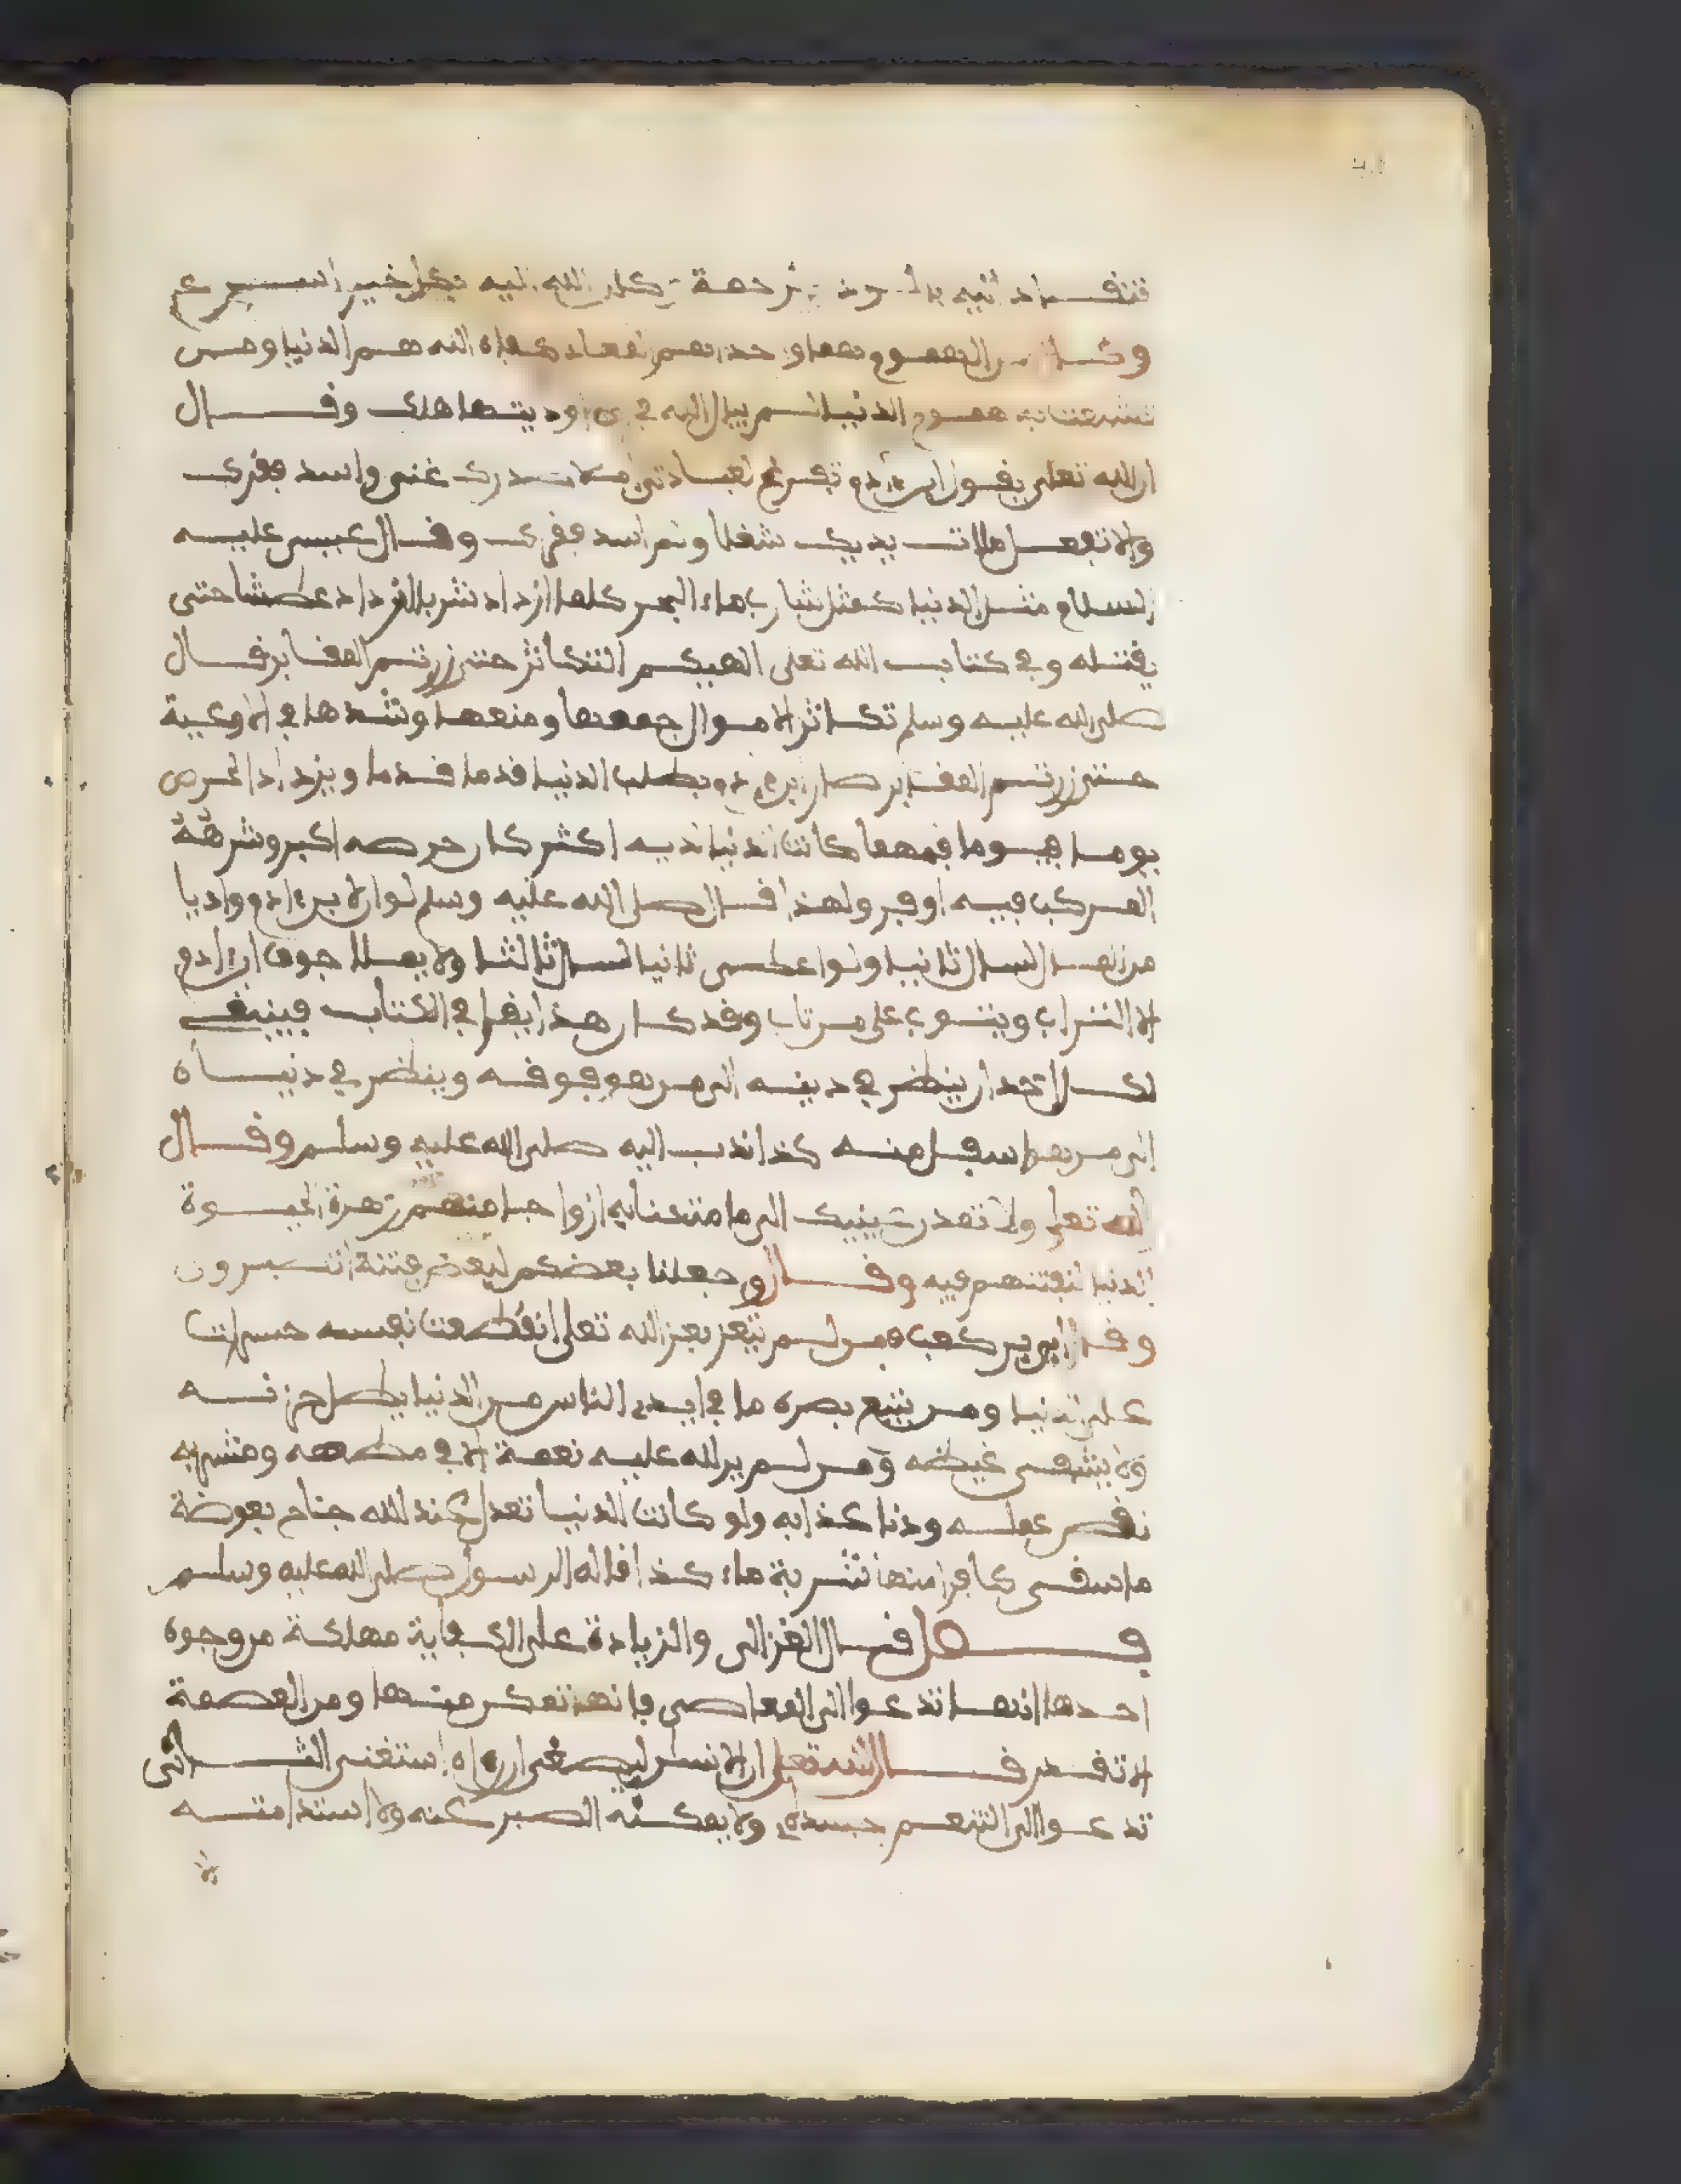 تنقاد اليه بالود والرحمة وكان الله اليه بكل خير اسرع
وقال من جعل الهموم هما واحدا هم المعاد كفاه الله هم الدنيا ومن
تشعبت به هموم الدنيا لم يبال الله في اي اوديتها هلك وقال
ان الله تعلى يقول ابن ءادم تفرغ لعبادتي املا صدرك غنى واسد فقرك
والا تفعل ملات يديك شغلا ولم اسد فقرك وقال عيسى عليه
السلام مثل الدنيا كمثل شارب ماء البحر كلما ازداد شربا ازداد عطشا حتى
يقتله وفي كتاب الله تعلى الهيكم التكاثر حتى زرتم المقابر قال
صلى الله عليه وسلم تكاثر الاموال جمعها ومنعها وشدها في الاوعية
حتى زرتم المقابر صار ابن ءادم يطلب الدنيا قدما قدما ويزداد الحرص
يوما فيوما فمهما كانت الدنيا لديه اكثر كان حرصه اكبر وشرهه
المركب فيه اوفر ولهذا قال صلى الله عليه وسلم لو ان لابن ءادم واديا
من المال لسال ثانيا ولو اعطى ثانيا لسال ثالثا ولا يملا جوف ابن ءادم
الا التراب ويتوب على من تاب وقد كان هذا يقرا في الكتاب فينبغي
لكل احد ان ينظر في دينه الى من هو فوقه وينظر في دنياه
الى من هو اسفل منه كذا ندب اليه صلى الله عليه وسلم وقال
الله تعلى ولا تمدن عينيك الى ما متعنا به ازواجا منهم زهرة الحيوة
الدنيا لنفتنهم فيه وقال وجعلنا بعضكم لبعض فتنة اتصبرون
وقال ابي بن كعب من لم يتعز بعز الله تعلى انقطعت نفسه حسرات
على الدنيا ومن يتبع بصره ما في ايدي الناس من الدنيا يطل حزنه
ولا يشفى غيظه ومن لم ير لله عليه نعمة الا في مطعمه ومشربه
نقص عمله ودنا عذابه ولو كانت الدنيا تعدل عند الله جناح بعوضة
ما سقى كافرا منها شربة ماء كذا قاله الرسول صلى الله عليه وسلم
فصل قال الغزالي والزيادة على الكفاية مهلكة من وجوه
احدها انها تدعوا الى المعاصي فانها تمكن منها ومن العصمة
الا تقدر قال الله تعلى ان الانسان ليطغى ان رءاه استغنى الثاني
تدعوا الى التنعم جسده ولا يمكنه الصبر عنه ولا استدامته
الا